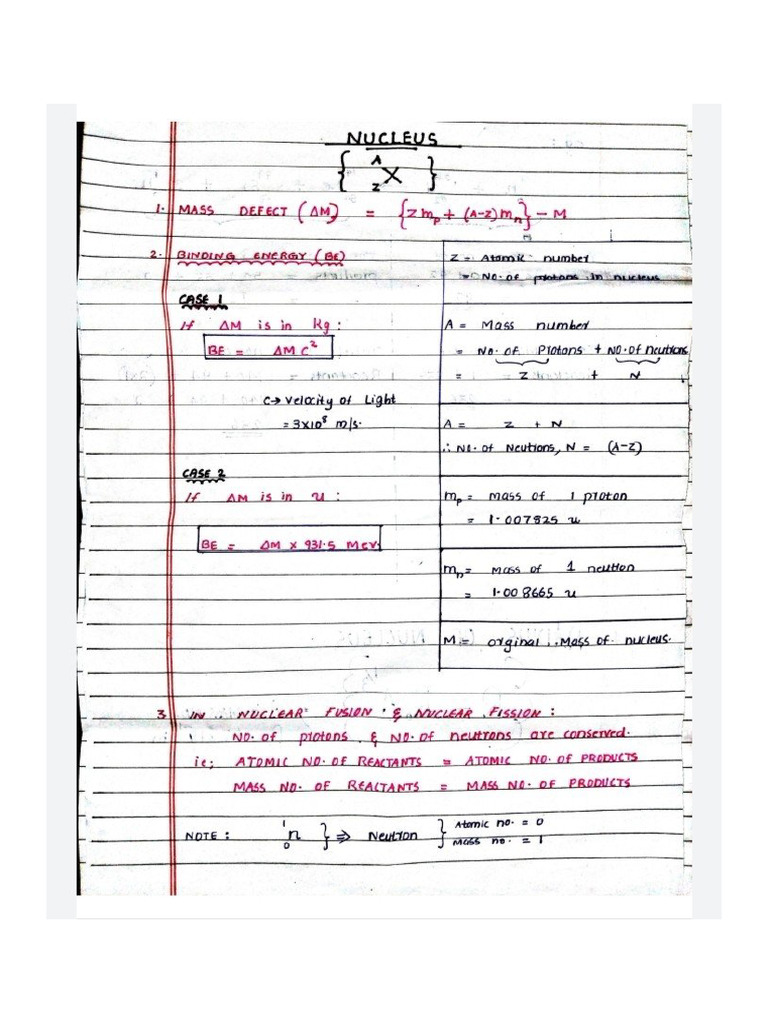 NUCLEUS
{ A Z X }
1. MASS DEFECT (ΔM) = {Zmp + (A-Z)mn} - M
2. BINDING ENERGY (BE)
CASE 1
If ΔM is in kg:
BE = ΔMC²
C → velocity of Light
= 3×10⁸ m/s.
CASE 2
If ΔM is in u:
BE = ΔM × 931.5 MeV.
Z = Atomic number
= No. of protons in nucleus
A = Mass number
= No. of Protons + No. of neutrons
= Z + N
A = Z + N
∴ No. of Neutrons, N = (A-Z)
mp = mass of 1 proton
= 1.007825 u
mn = mass of 1 neutron
= 1.008665 u
M = orginal Mass of nucleus.
3. IN NUCLEAR FUSION & NUCLEAR FISSION:
No. of protons & No. of neutrons are conserved.
ie; ATOMIC NO. OF REACTANTS = ATOMIC NO. OF PRODUCTS
MASS NO. OF REACTANTS = MASS NO. OF PRODUCTS
NOTE: 1 0 n } ⇒ Neutron } Atomic no. = 0
Mass no. = 1